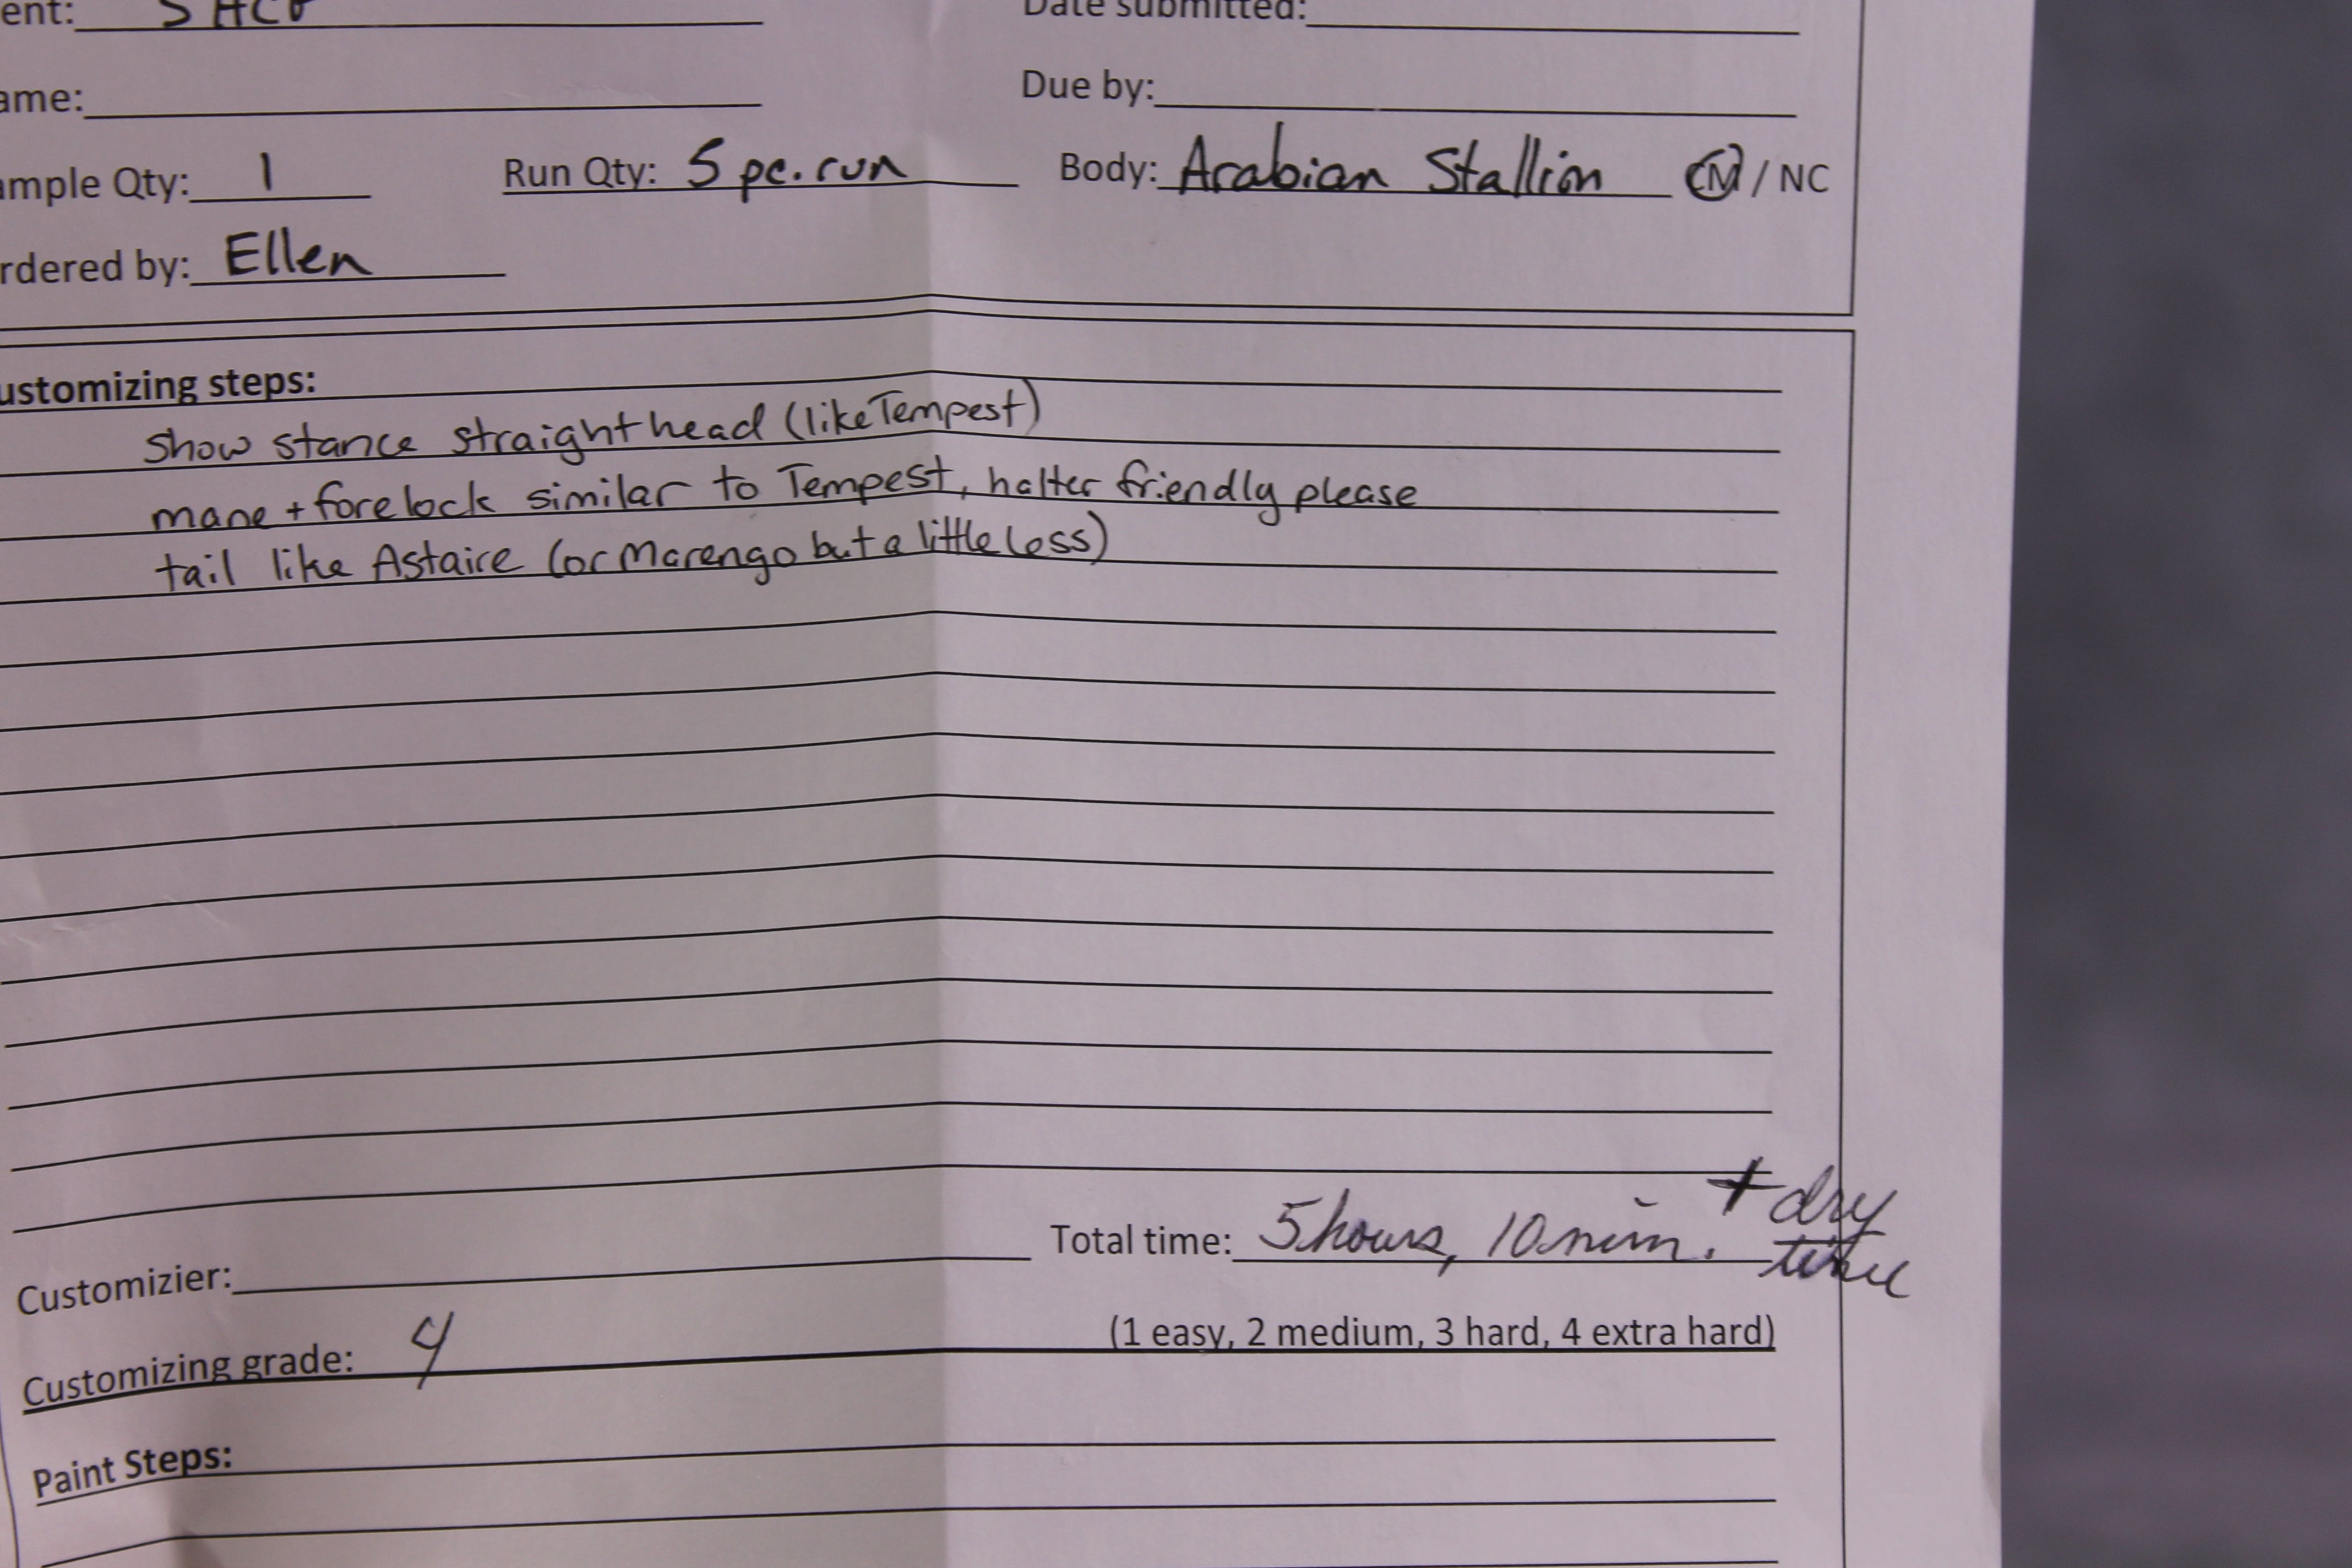 ent:
Date submitted:
ame:
Due by:
ample Qty: 1 Run Qty: 5 pc. run Body: Arabian Stallion CM / NC
rdered by: Ellen
ustomizing steps:
show stance straight head (like Tempest)
mane + forelock similar to Tempest, halter friendly please
tail like Astaire (or Marengo but a little less)
Total time: 5 hours, 10 min. + dry time
Customizier:
(1 easy, 2 medium, 3 hard, 4 extra hard)
Customizing grade: 4
Paint Steps: